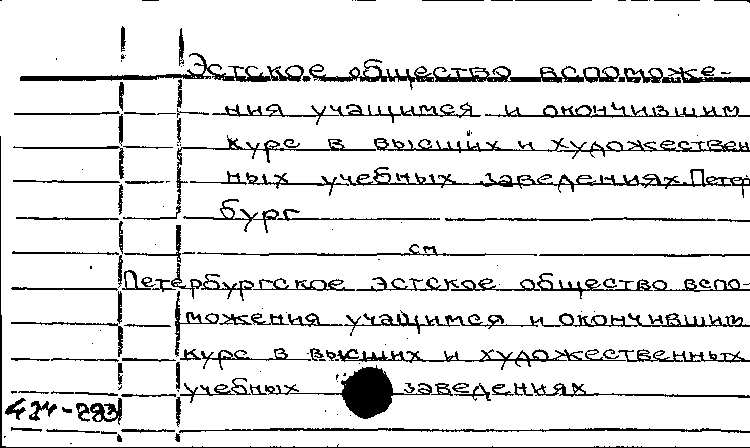 Эстское общество вспоможе-
ния учащимся и окончившим
курс в высших и художествен
ных учебных заведениях. Петер
бург
см
Петербургское эстское общество вспо-
можения учащимся и окончившим
курс в высших и художественных
учебных заведениях